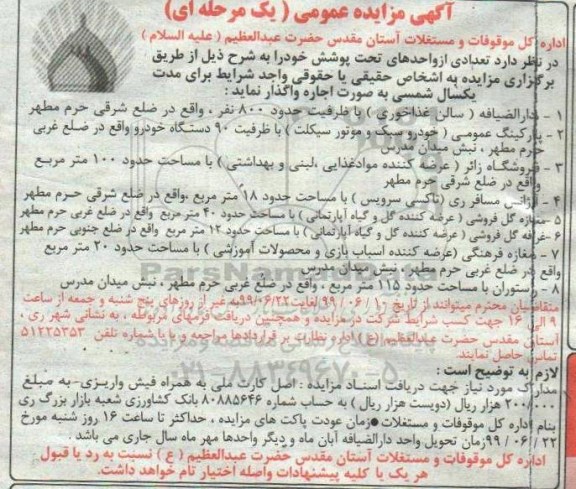 آگهی مزایده عمومی ( یک مرحله ای)
اداره کل موقوفات و مستغلات آستان مقدس حضرت عبدالعظیم ( علیه السلام )
در نظر دارد تعدادی ازواحدهای تحت پوشش خودرا به شرح ذیل از طریق
برگزاری مزایده به اشخاص حقیقی یا حقوقی واجد شرایط برای مدت
یکسال شمسی به صورت اجاره واگذار نماید :
۱ - دارالضیافه ( سالن غذاخوری ) با ظرفیت حدود ۸۰۰ نفر ، واقع در ضلع شرقی حرم مطهر
۲ - پارکینگ عمومی ( خودرو سبک و موتور سیکلت ) با ظرفیت ۹۰ دستگاه خودرو واقع در ضلع غربی
حرم مطهر ، نبش میدان مدرس
۳ - فروشگاه زائر ( عرضه کننده موادغذایی ،لبنی و بهداشتی ) با مساحت حدود ۱۰۰ متر مربع
واقع در ضلع شرقی حرم مطهر
۴ - آژانس مسافر ری (تاکسی سرویس ) با مساحت حدود ۱۸ متر مربع ،واقع در ضلع شرقی حرم مطهر
۵- مغازه گل فروشی ( عرضه کننده گل و گیاه آپارتمانی ) با مساحت حدود ۴۰ متر مربع واقع در ضلع غربی حرم مطهر
۶ -غرفه گل فروشی ( عرضه کننده گل و گیاه آپارتمانی ) با مساحت حدود ۱۲ متر مربع واقع در ضلع جنوبی حرم مطهر
۷ - مغازه فرهنگی (عرضه کننده اسباب بازی و محصولات آموزشی ) با مساحت حدود ۲۰ متر مربع
واقع در ضلع غربی حرم مطهر، نبش میدان مدرس
۸ - رستوران با مساحت حدود ۱۱۵ متر مربع ، واقع در ضلع غربی حرم مطهر ، نبش میدان مدرس
متقاضیان محترم میتوانند از تاریخ ۱۰ / ۰۶ / ۹۹ لغایت ۹۹/۰۶/۲۲به غیر از روزهای پنج شنبه و جمعه از ساعت
۹ الی ۱۶ جهت کسب شرایط شرکت در مزایده و همچنین دریافت فرمهای مربوطه ، به نشانی شهر ری ،
آستان مقدس حضرت عبدالعظیم (ع) اداره نظارت بر قراردادها مراجعه و یا با شماره تلفن ۵۱۲۲۵۳۵۳
تماس حاصل نمایند.
لازم به توضیح است :
مدارک مورد نیاز جهت دریافت اسناد مزایده : اصل کارت ملی به همراه فیش واریزی-به مبلغ
۲۰۰/۰۰۰ هزار ریال (دویست هزار ریال ) به حساب شماره ۸۰۸۸۵۶۴۶ بانک کشاورزی شعبه بازار بزرگ ری
بنام اداره کل موقوفات و مستغلات زمان عودت پاکت های مزایده ، حداکثر تا ساعت ۱۶ روز شنبه مورخ
۲۲ / ۰۶ / ۹۹زمان تحویل واحد دارالضیافه آبان ماه و دیگر واحدها مهر ماه سال جاری می باشد .
اداره کل موقوفات و مستغلات آستان مقدس حضرت عبدالعظیم ( ع ) نسبت به رد یا قبول
هر یک یا کلیه پیشنهادات واصله اختیار تام خواهد داشت.
ParsNamadData
۰۲۱-۸۸۳۴۹۶۷۰-۵